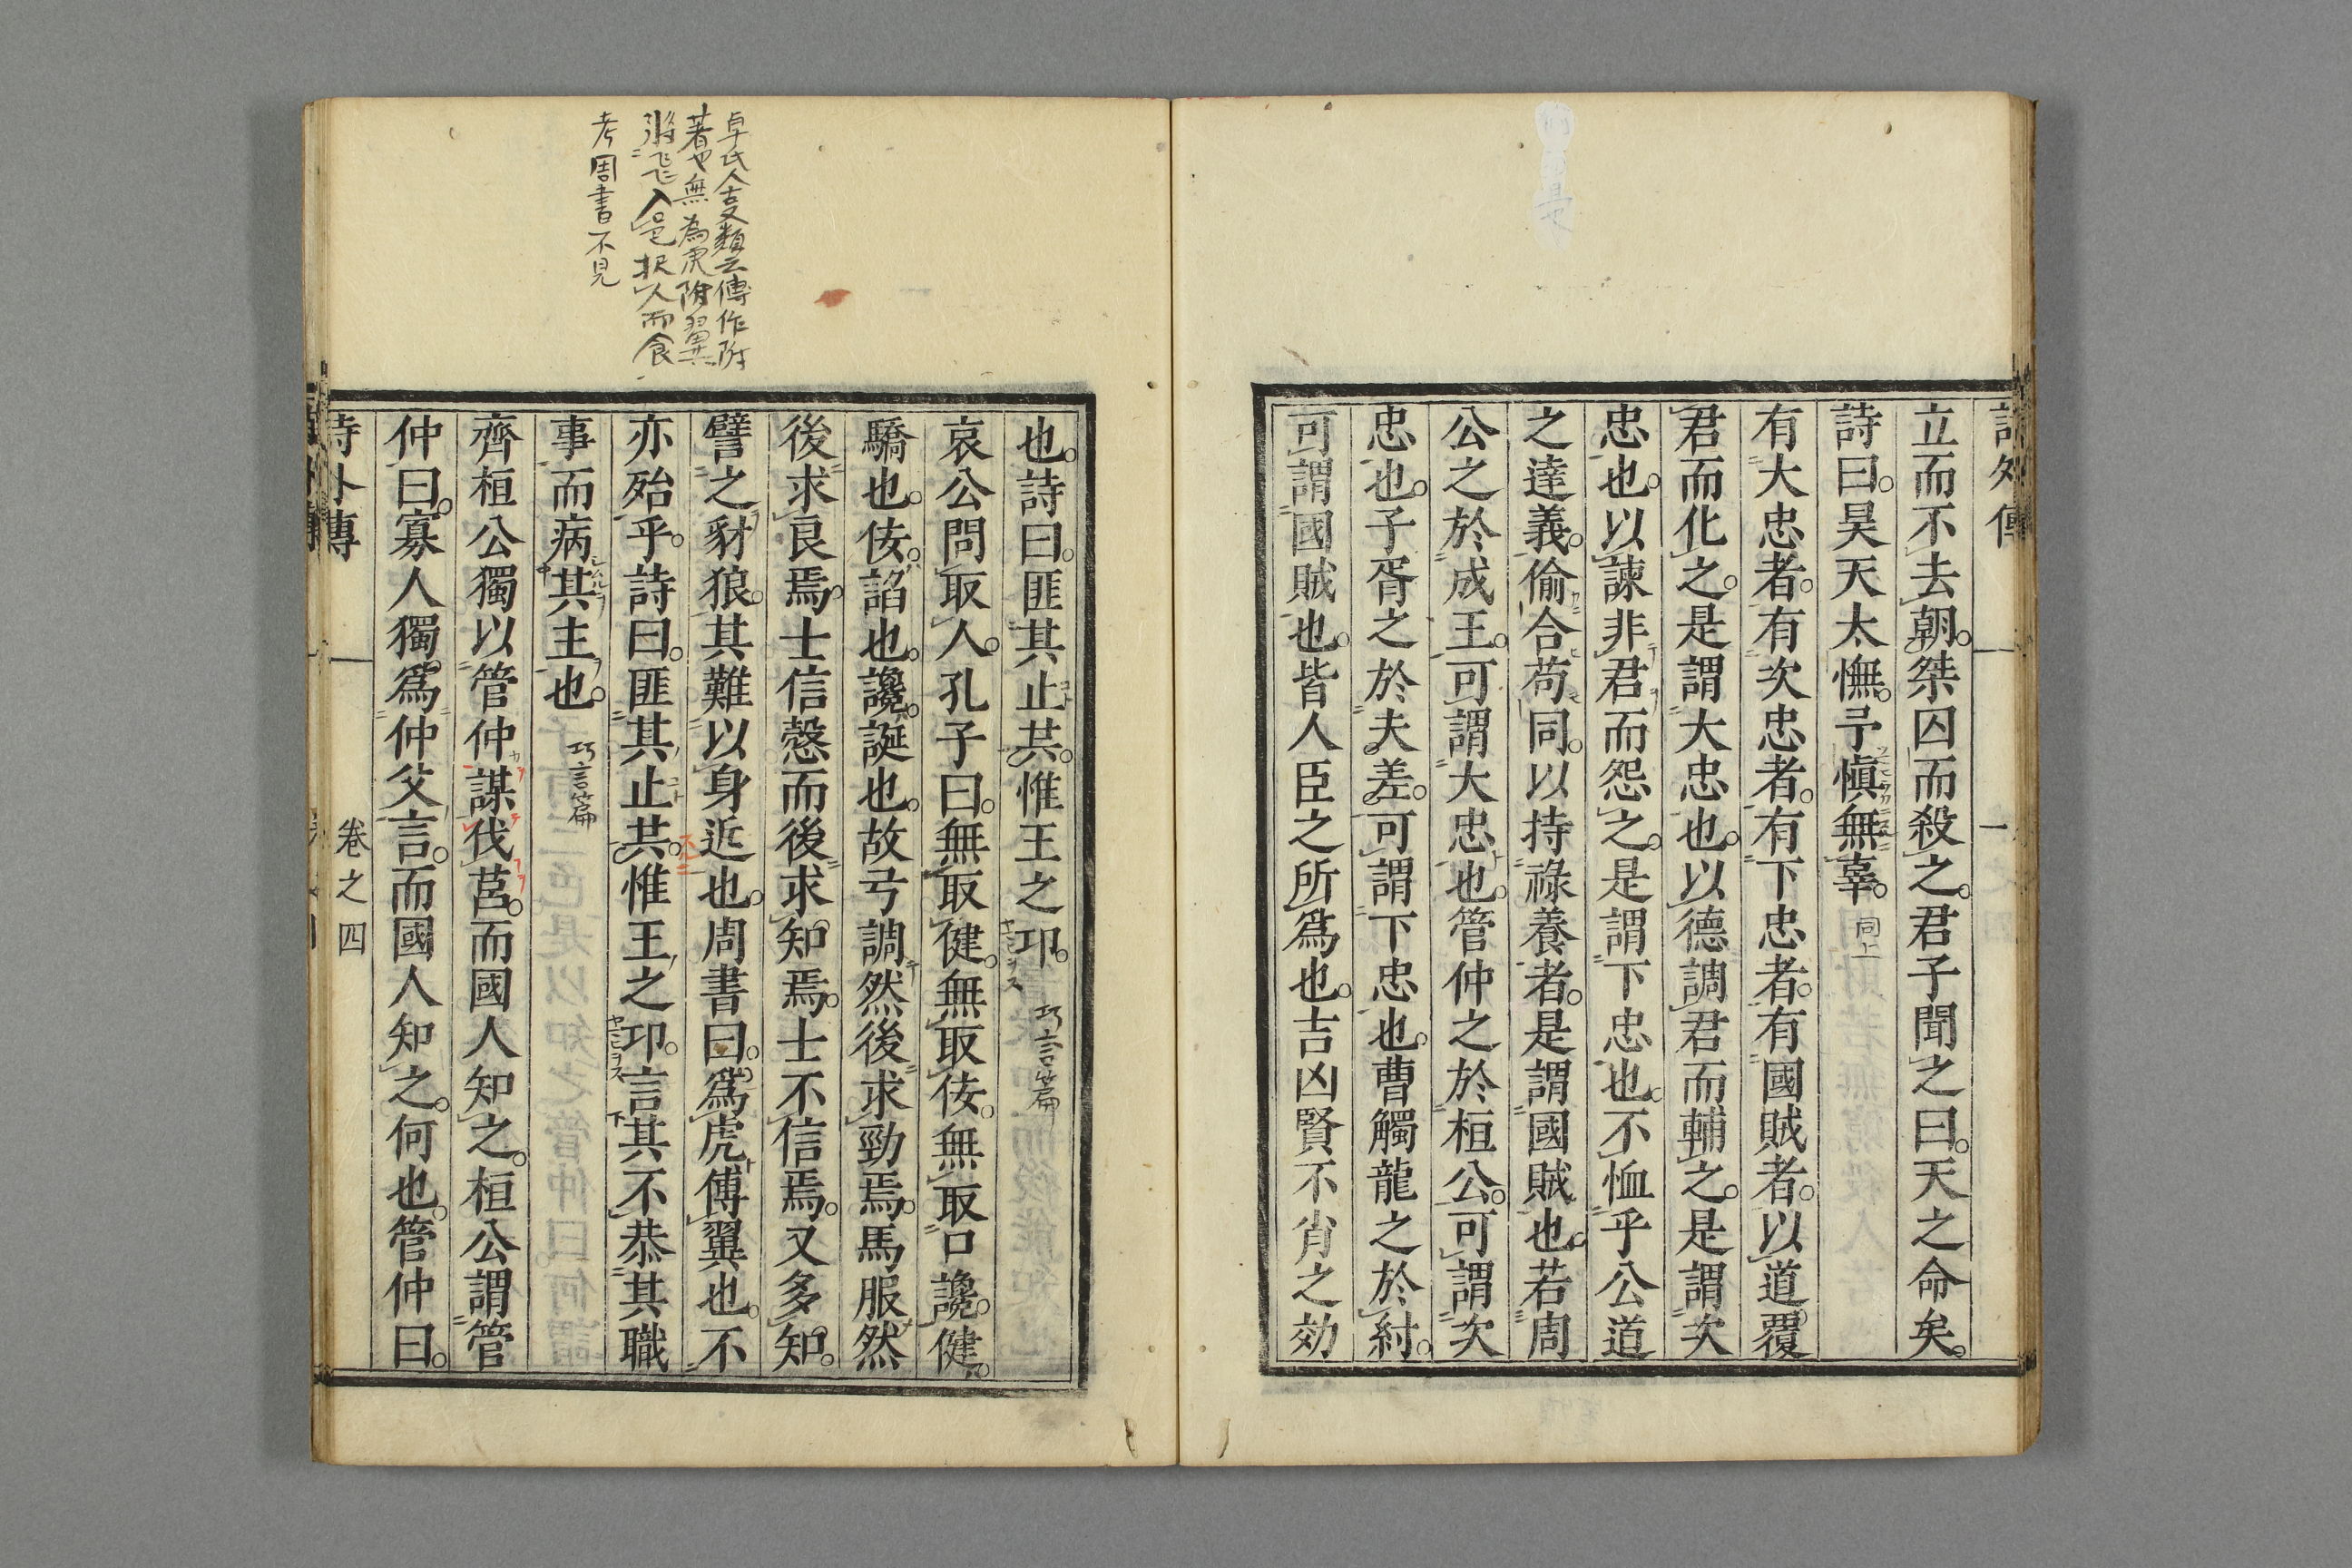 立而不去朝。桀囚而殺之。君子聞之曰。天之命矣。
詩曰。昊天太憮。予愼無辜。同上
有大忠者。有次忠者。有下忠者。有國賊者。以道覆
君而化之。是謂大忠也。以德調君而輔之。是謂次
忠也。以諫非君而怨之。是謂下忠也。不恤乎公道
之達義。偷合苟同。以持祿養者。是謂國賊也。若周
公之於成王。可謂大忠也。管仲之於桓公。可謂次
忠也。子胥之於夫差。可謂下忠也。曹觸龍之於紂。
可謂國賊也。皆人臣之所爲也。吉凶賢不肖之効
也。詩曰。匪其止共。惟王之卭。巧言篇
哀公問取人。孔子曰。無取健。無取佞。無取口讒。健。
驕也。佞。諂也。讒。誕也。故弓調然後求勁焉。馬服然
後求良焉。士信慤而後求知焉。士不信焉。又多知。
譬之豺狼。其難以身近也。周書曰。爲虎傅翼也。不
亦殆乎。詩曰。匪其止共。惟王之卭。言其不恭其職
事而病其主也。巧言篇
齊桓公獨以管仲謀伐莒。而國人知之。桓公謂管
仲曰。寡人獨爲仲父言。而國人知之。何也。管仲曰。
詩外傳 卷之四
傳作附
著也無爲虎附翼
將飛入邑択人而食
考周書不見